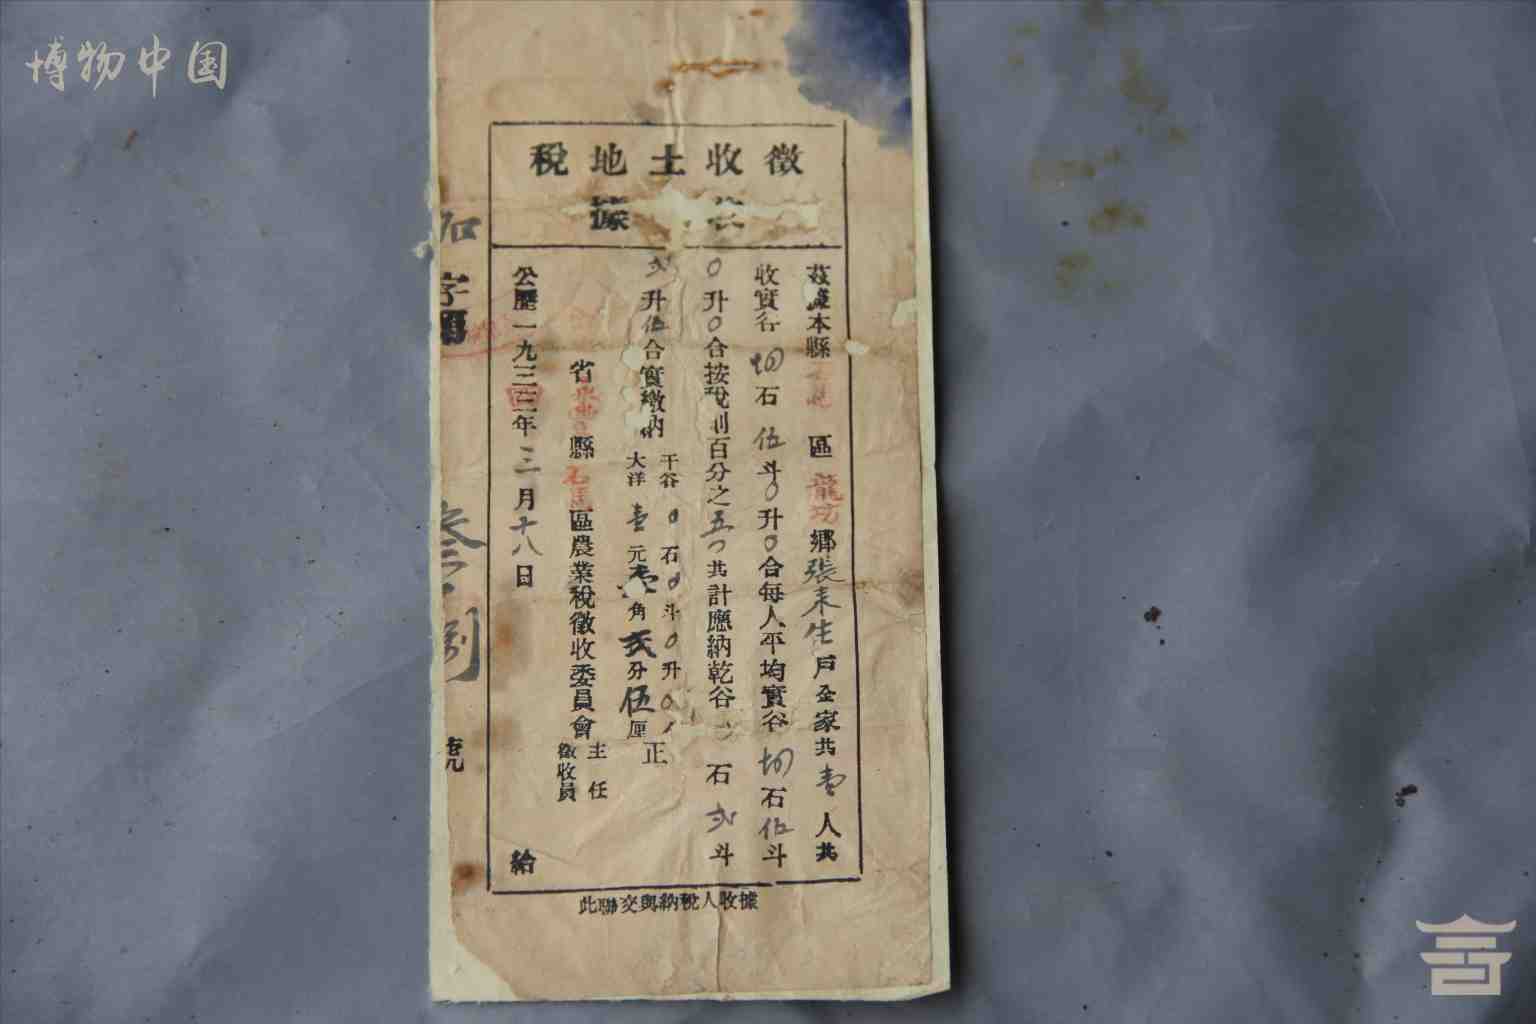 博物中国
徵收土地稅
收據
茲據本縣區龍坊鄉張來生戶全家共壹人共
收實谷石伍斗0升0合每人平均實谷石伍斗
0升0合按稅則百分之五〇共計應納乾谷石弍斗
弍升伍合實繳納
干谷0石0斗0升0
大洋壹元壹角弍分伍厘
正
省永豐縣石馬區農業稅徵收委員會
主任
徵收員
公歷一九三三年三月十八日
給
石字第叁捌號
此聯交與納稅人收據